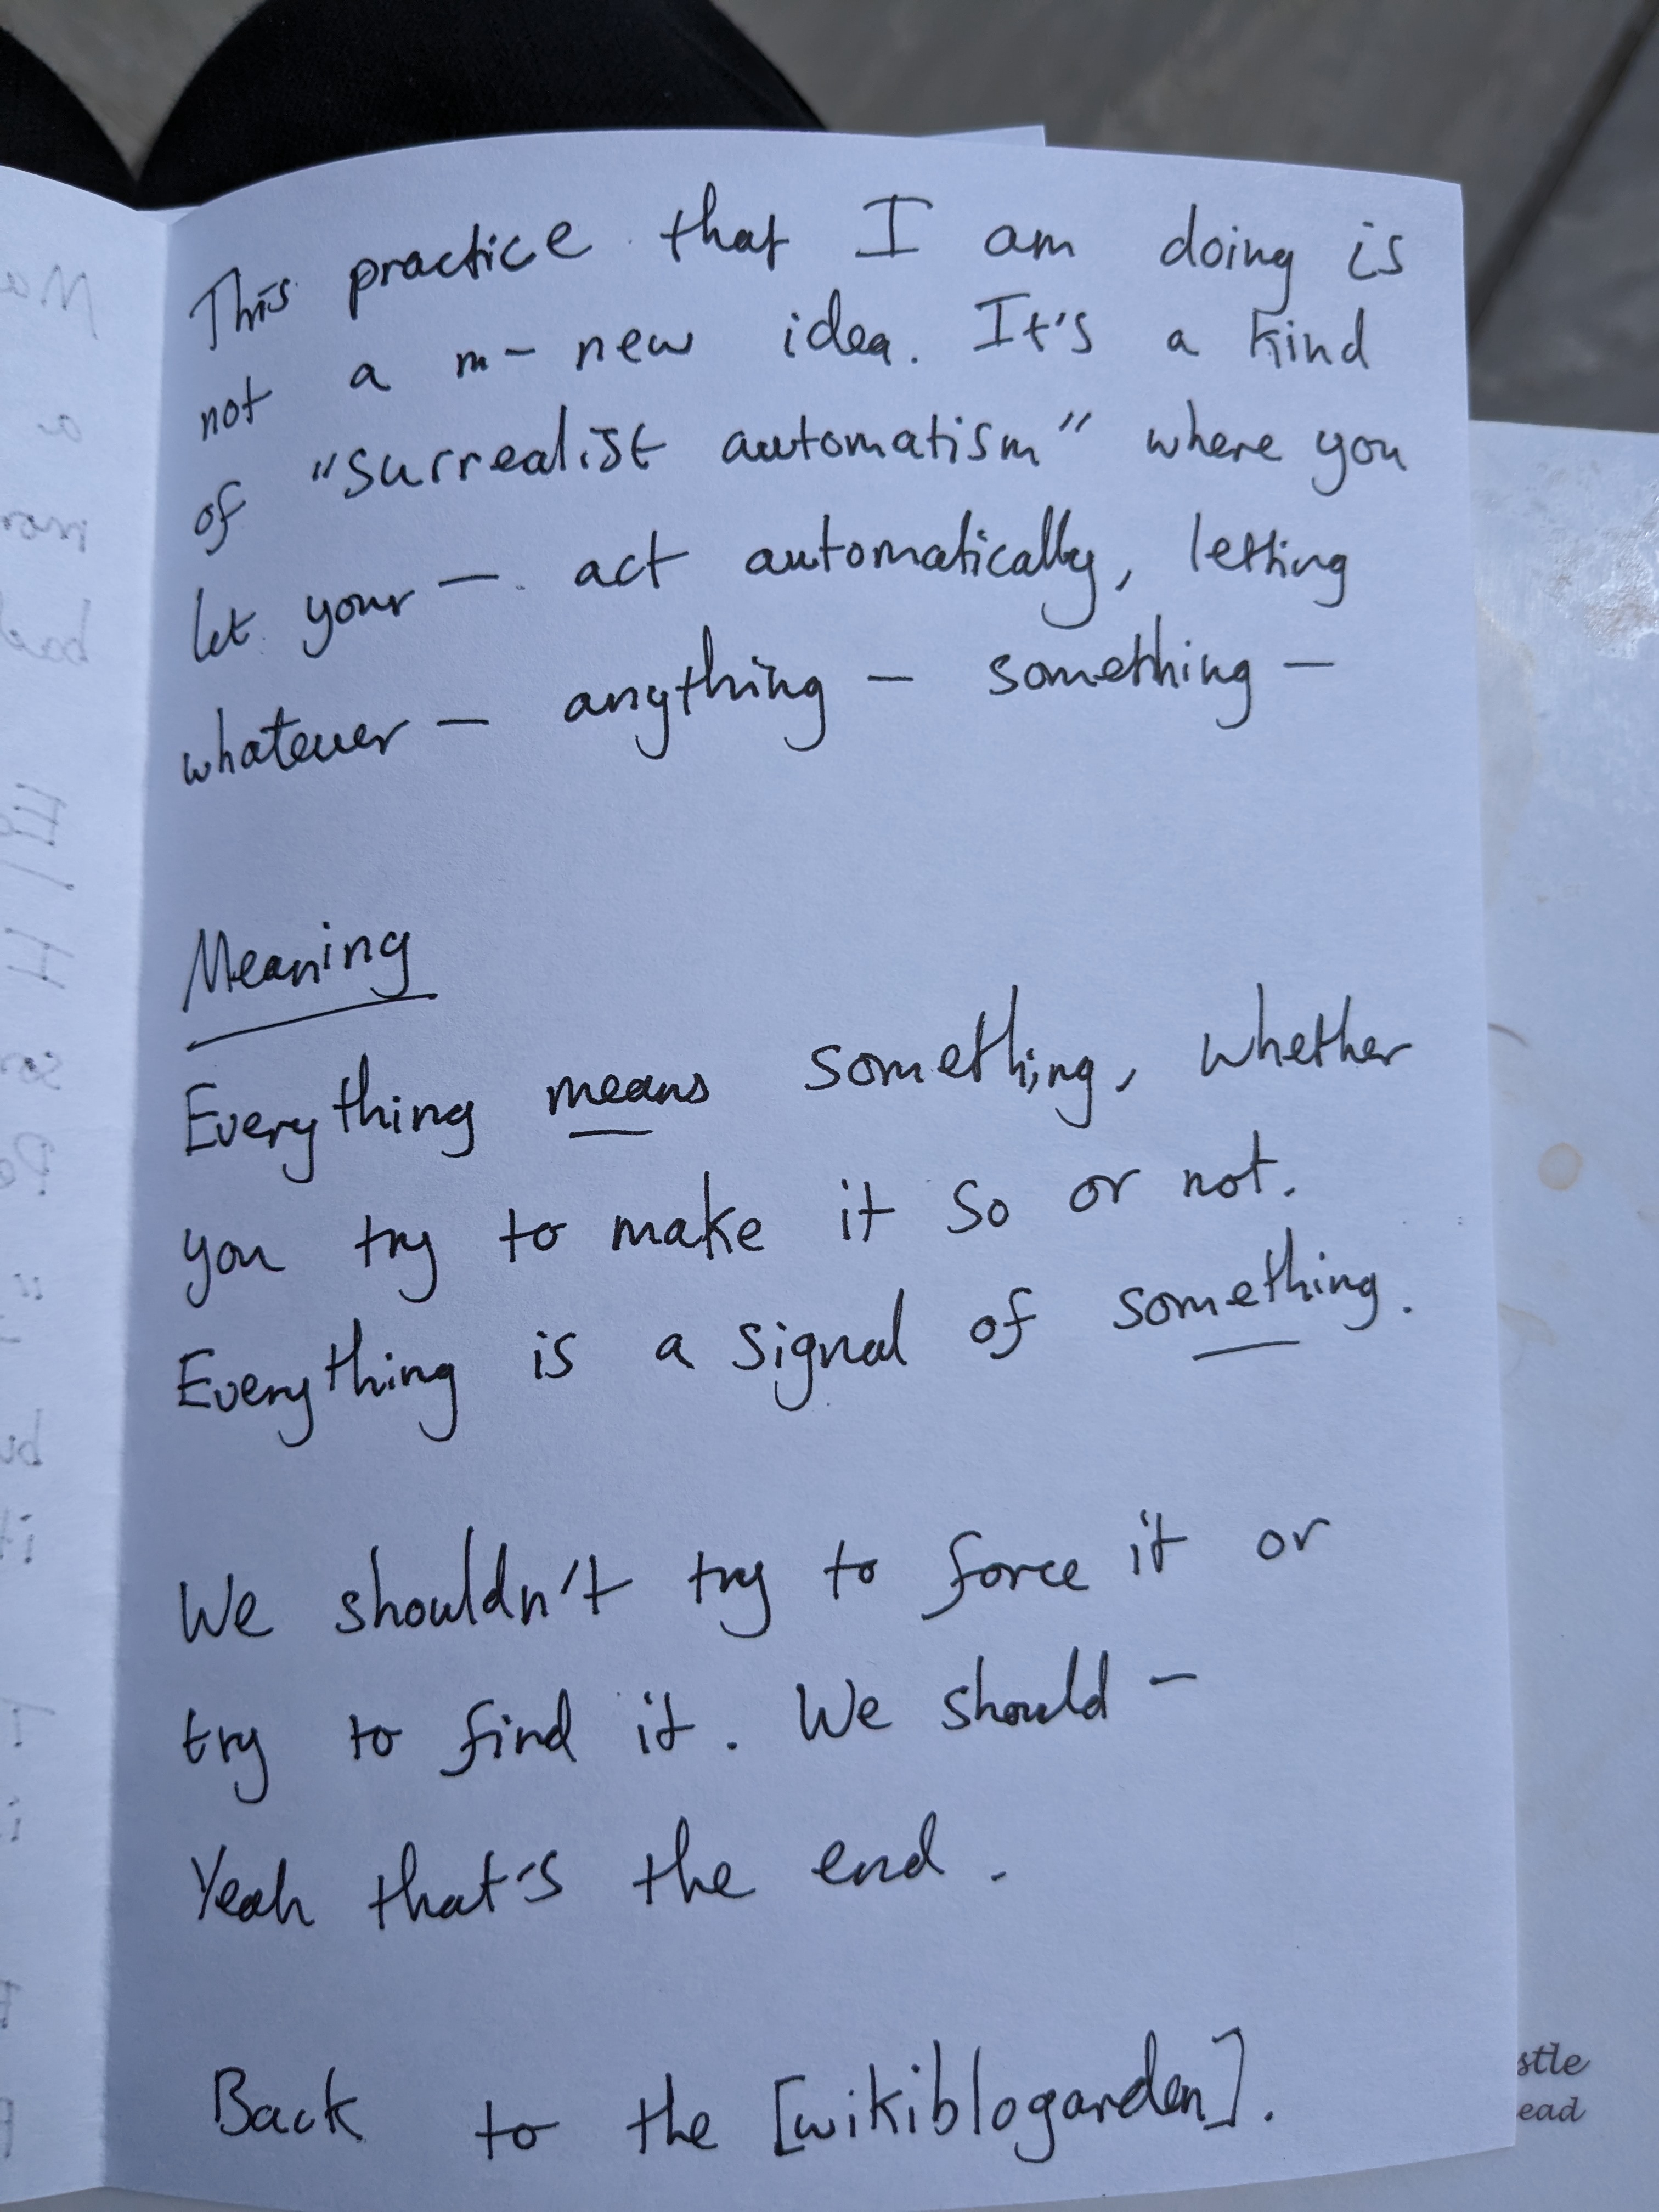 This practice that I am doing is
not a m– new idea. It's a kind
of "surrealist automatism" where you
let your — act automatically, letting
whatever — anything — something —
Meaning
Everything means something, whether
you try to make it so or not.
Everything is a signal of something.
We shouldn't try to force it or
try to find it. We should –
Yeah that's the end.
Back to the [wikiblogarden].
stle
ead